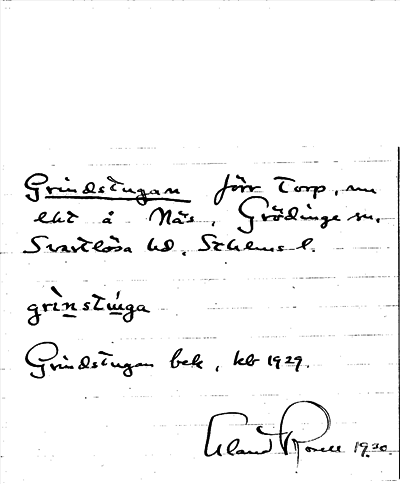 Grindstugan förr torp, nu
lht å Näs, Grödinge sn.
Svartlösa hd. Sthlms l.
grinstuga
Grindstugan bek, kb 1929.
Roséll 1930.